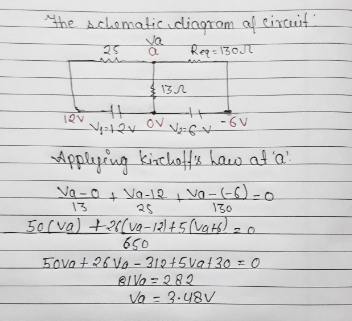 The schematic diagram of circuit:
Va
25 a Req = 130Ω
13Ω
12V V1=12V 0V V2=6V -6V
Applying kirchoff's Law at 'a'
Va-0/13 + Va-12/25 + Va-(-6)/130 = 0
50(Va) + 26(Va-12) + 5(Va+6)/650 = 0
50Va + 26Va - 312 + 5Va + 30 = 0
81Va = 282
Va = 3.48V